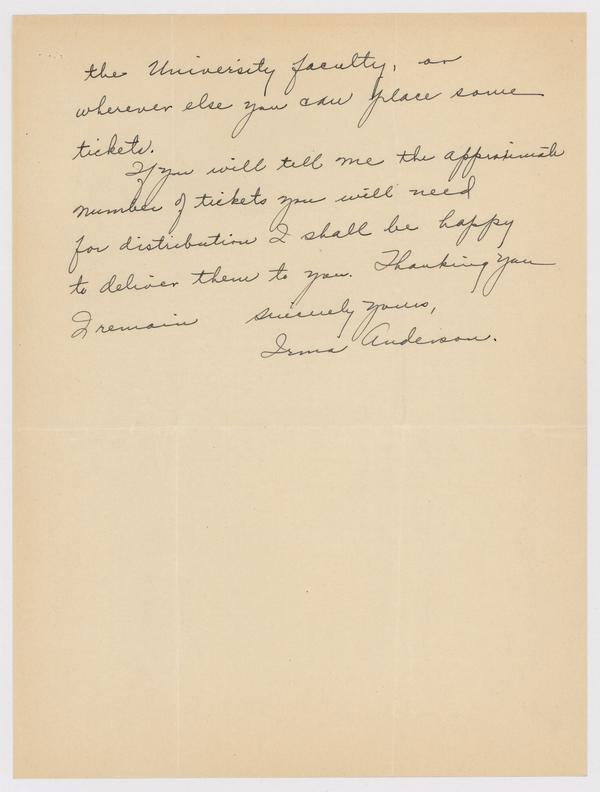 the University faculty, or
wherever else you can place some
tickets.
If you will tell me the approximate
number of tickets you will need
for distribution I shall be happy
to deliver them to you. Thanking you
I remain sincerely yours,
Irma Anderson.